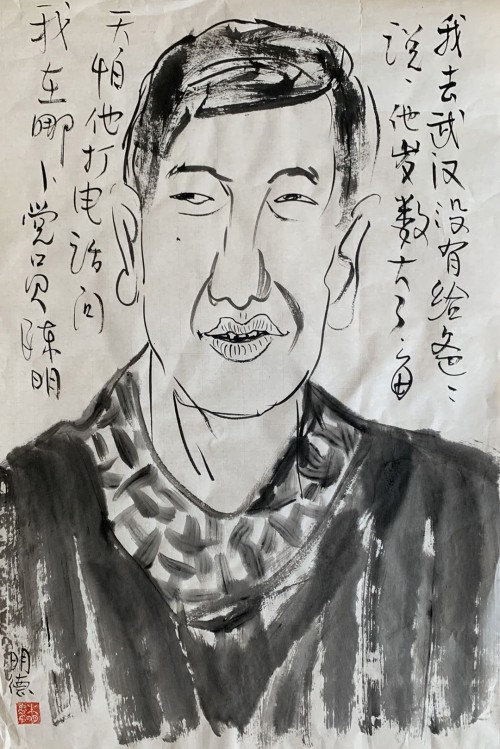 我去武汉没有给爸〻
说、他岁数大了每
天怕他打电话问
我在哪卜党员陈明
明德